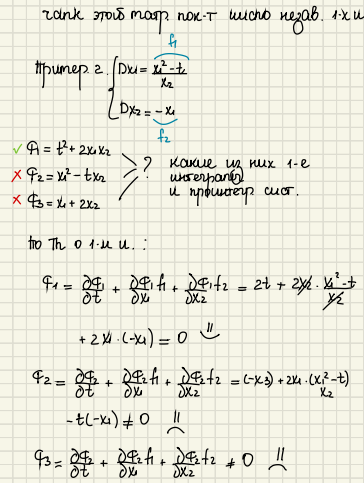 ранк этой матр. пок-т число незав. 1-х и
f₁
Пример 2. { Dx₁ = (x₁² - t)/x₂
Dx₂ = -x₁
f₂
✓ φ₁ = t² + 2x₁x₂
✗ φ₂ = x₁² - tx₂
✗ φ₃ = x₁ + 2x₂
? какие из них 1-е
интегралы
и проинтегр сист.
по Th о 1.и. :
φ₁ = ∂φ₁/∂t + ∂φ₁/∂x₁ f₁ + ∂φ₁/∂x₂ f₂ = 2t + 2x₂ · (x₁² - t)/x₂
+ 2x₁ · (-x₁) = 0
φ₂ = ∂φ₂/∂t + ∂φ₂/∂x₁ f₁ + ∂φ₂/∂x₂ f₂ = (-x₃) + 2x₁ · (x₁² - t)/x₂
- t(-x₁) ≠ 0
φ₃ = ∂φ₃/∂t + ∂φ₃/∂x₁ f₁ + ∂φ₃/∂x₂ f₂ ≠ 0